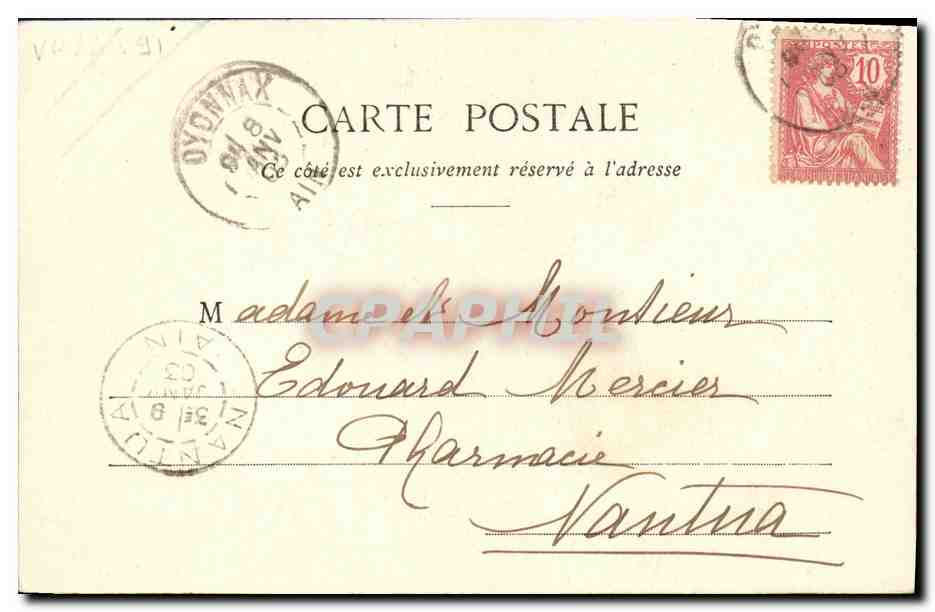 POSTES
10
RÉPUBLIQUE FRANÇAISE
OYONNAX
8
JANV
03
AIN
CARTE POSTALE
Ce côté est exclusivement réservé à l'adresse
Madame et Monsieur
Edouard Mercier
Pharmacie
Nantua
NANTUA
3E 9
JANV
03
AIN
CPAPHIL